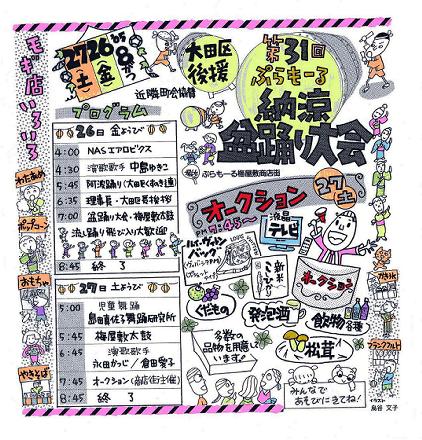 模擬店いろいろ
わたあめ
ポップコーン
おもちゃ
やきそば
'05
8がつ
26(金)
27(土)
近隣町会協賛
大田区
後援
第31回
ぷらもーる
納涼
盆踊り大会
ぷらもーる梅屋敷商店街
プログラム
26日 金ようび
4:00 NASエアロビクス
4:30 演歌歌手 中島ゆきこ
5:45
6:35 理事長・大田区長挨拶
7:00 盆踊り大会・梅屋敷太鼓
流し踊り飛び入り大歓迎
8:45 終了
27日 土ようび
5:00 児童舞踊
島田真佐子舞踊研究所
5:45 梅屋敷太鼓
6:45 演歌歌手
永田かつじ/倉田愛子
7:45 オークション(商店街主催)
8:45 終了
27土
オークション
PM7:45〜
液晶
テレビ
ルイ・ヴィトン
バッグ
新米
こしひかり
オークション
くだもの
発泡酒
飲物各種
多数の
品物を用意して
います。
松茸
かき氷
フランクフルト
みんなで
あそびにきてね!
イラスト
鳥谷 文子